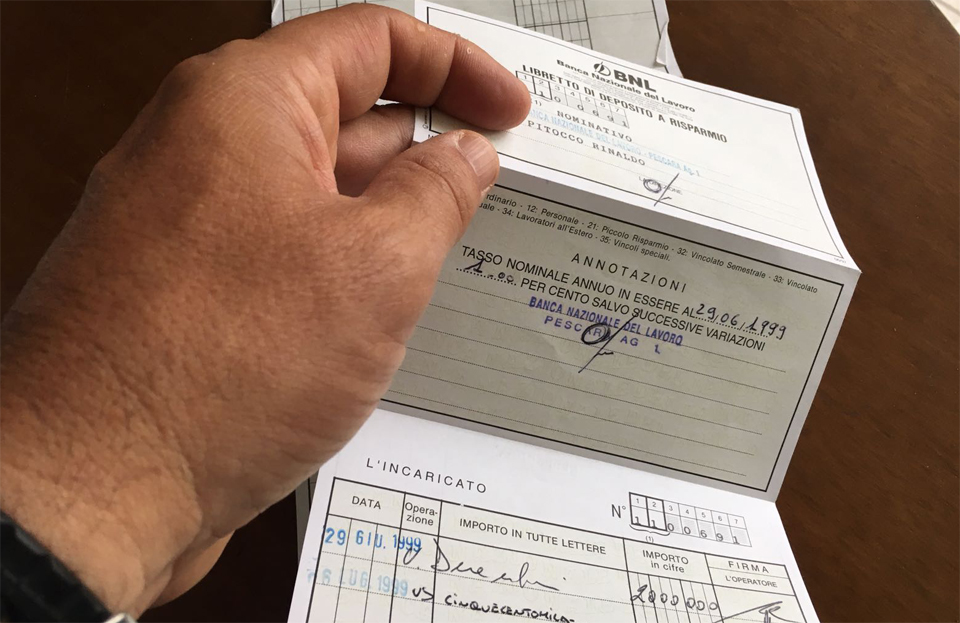 BNL
Banca Nazionale del Lavoro
LIBRETTO DI DEPOSITO A RISPARMIO
1 2 3 4 5 6 7
1 1 0 0 6 9 1
(1) NOMINATIVO
BANCA NAZIONALE DEL LAVORO - PESCARA AG 1
PITOCCO RINALDO
ordinario - 12: Personale - 21: Piccolo Risparmio - 32: Vincolato Semestrale - 33: Vincolato
34: Lavoratori all'Estero - 35: Vincoli speciali.
ANNOTAZIONI
TASSO NOMINALE ANNUO IN ESSERE AL 29/06/1999
1.00 PER CENTO SALVO SUCCESSIVE VARIAZIONI
BANCA NAZIONALE DEL LAVORO
PESCARA AG 1
L'INCARICATO
N° 1 2 3 4 5 6 7
1 1 0 0 6 9 1
(1)
DATA Opera-zione IMPORTO IN TUTTE LETTERE IMPORTO in cifre FIRMA L'OPERATORE
29 GIU. 1999 2000000
6 LUG 1999 US CINQUECENTOMILA